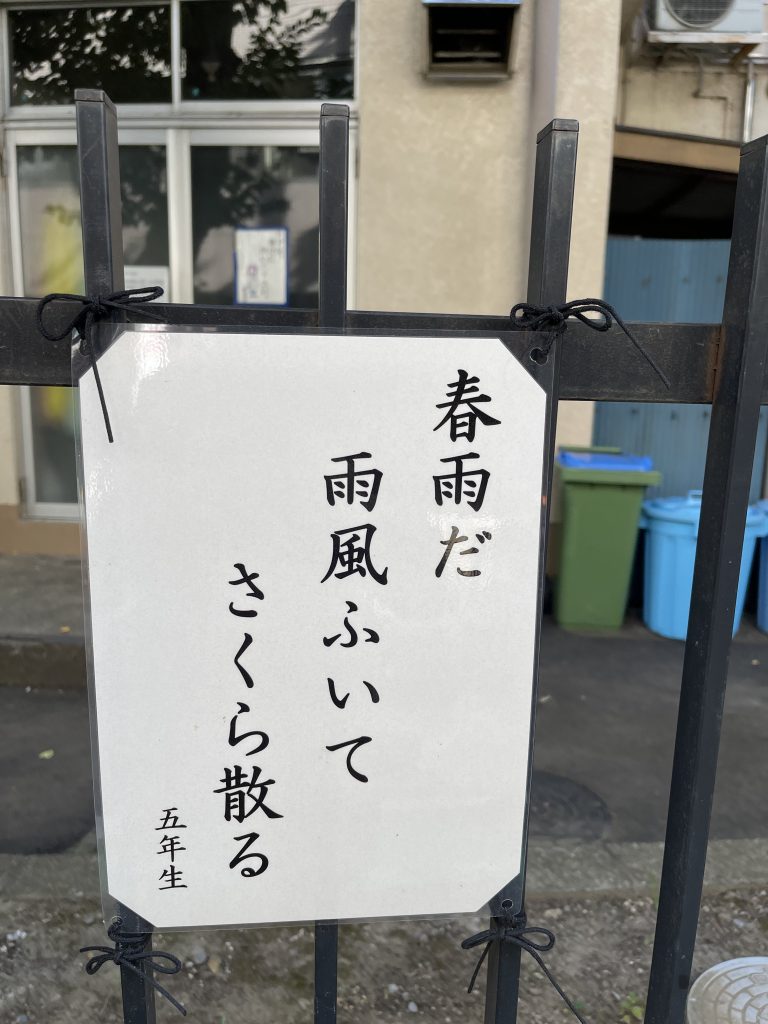 春雨だ
雨風ふいて
さくら散る
五年生